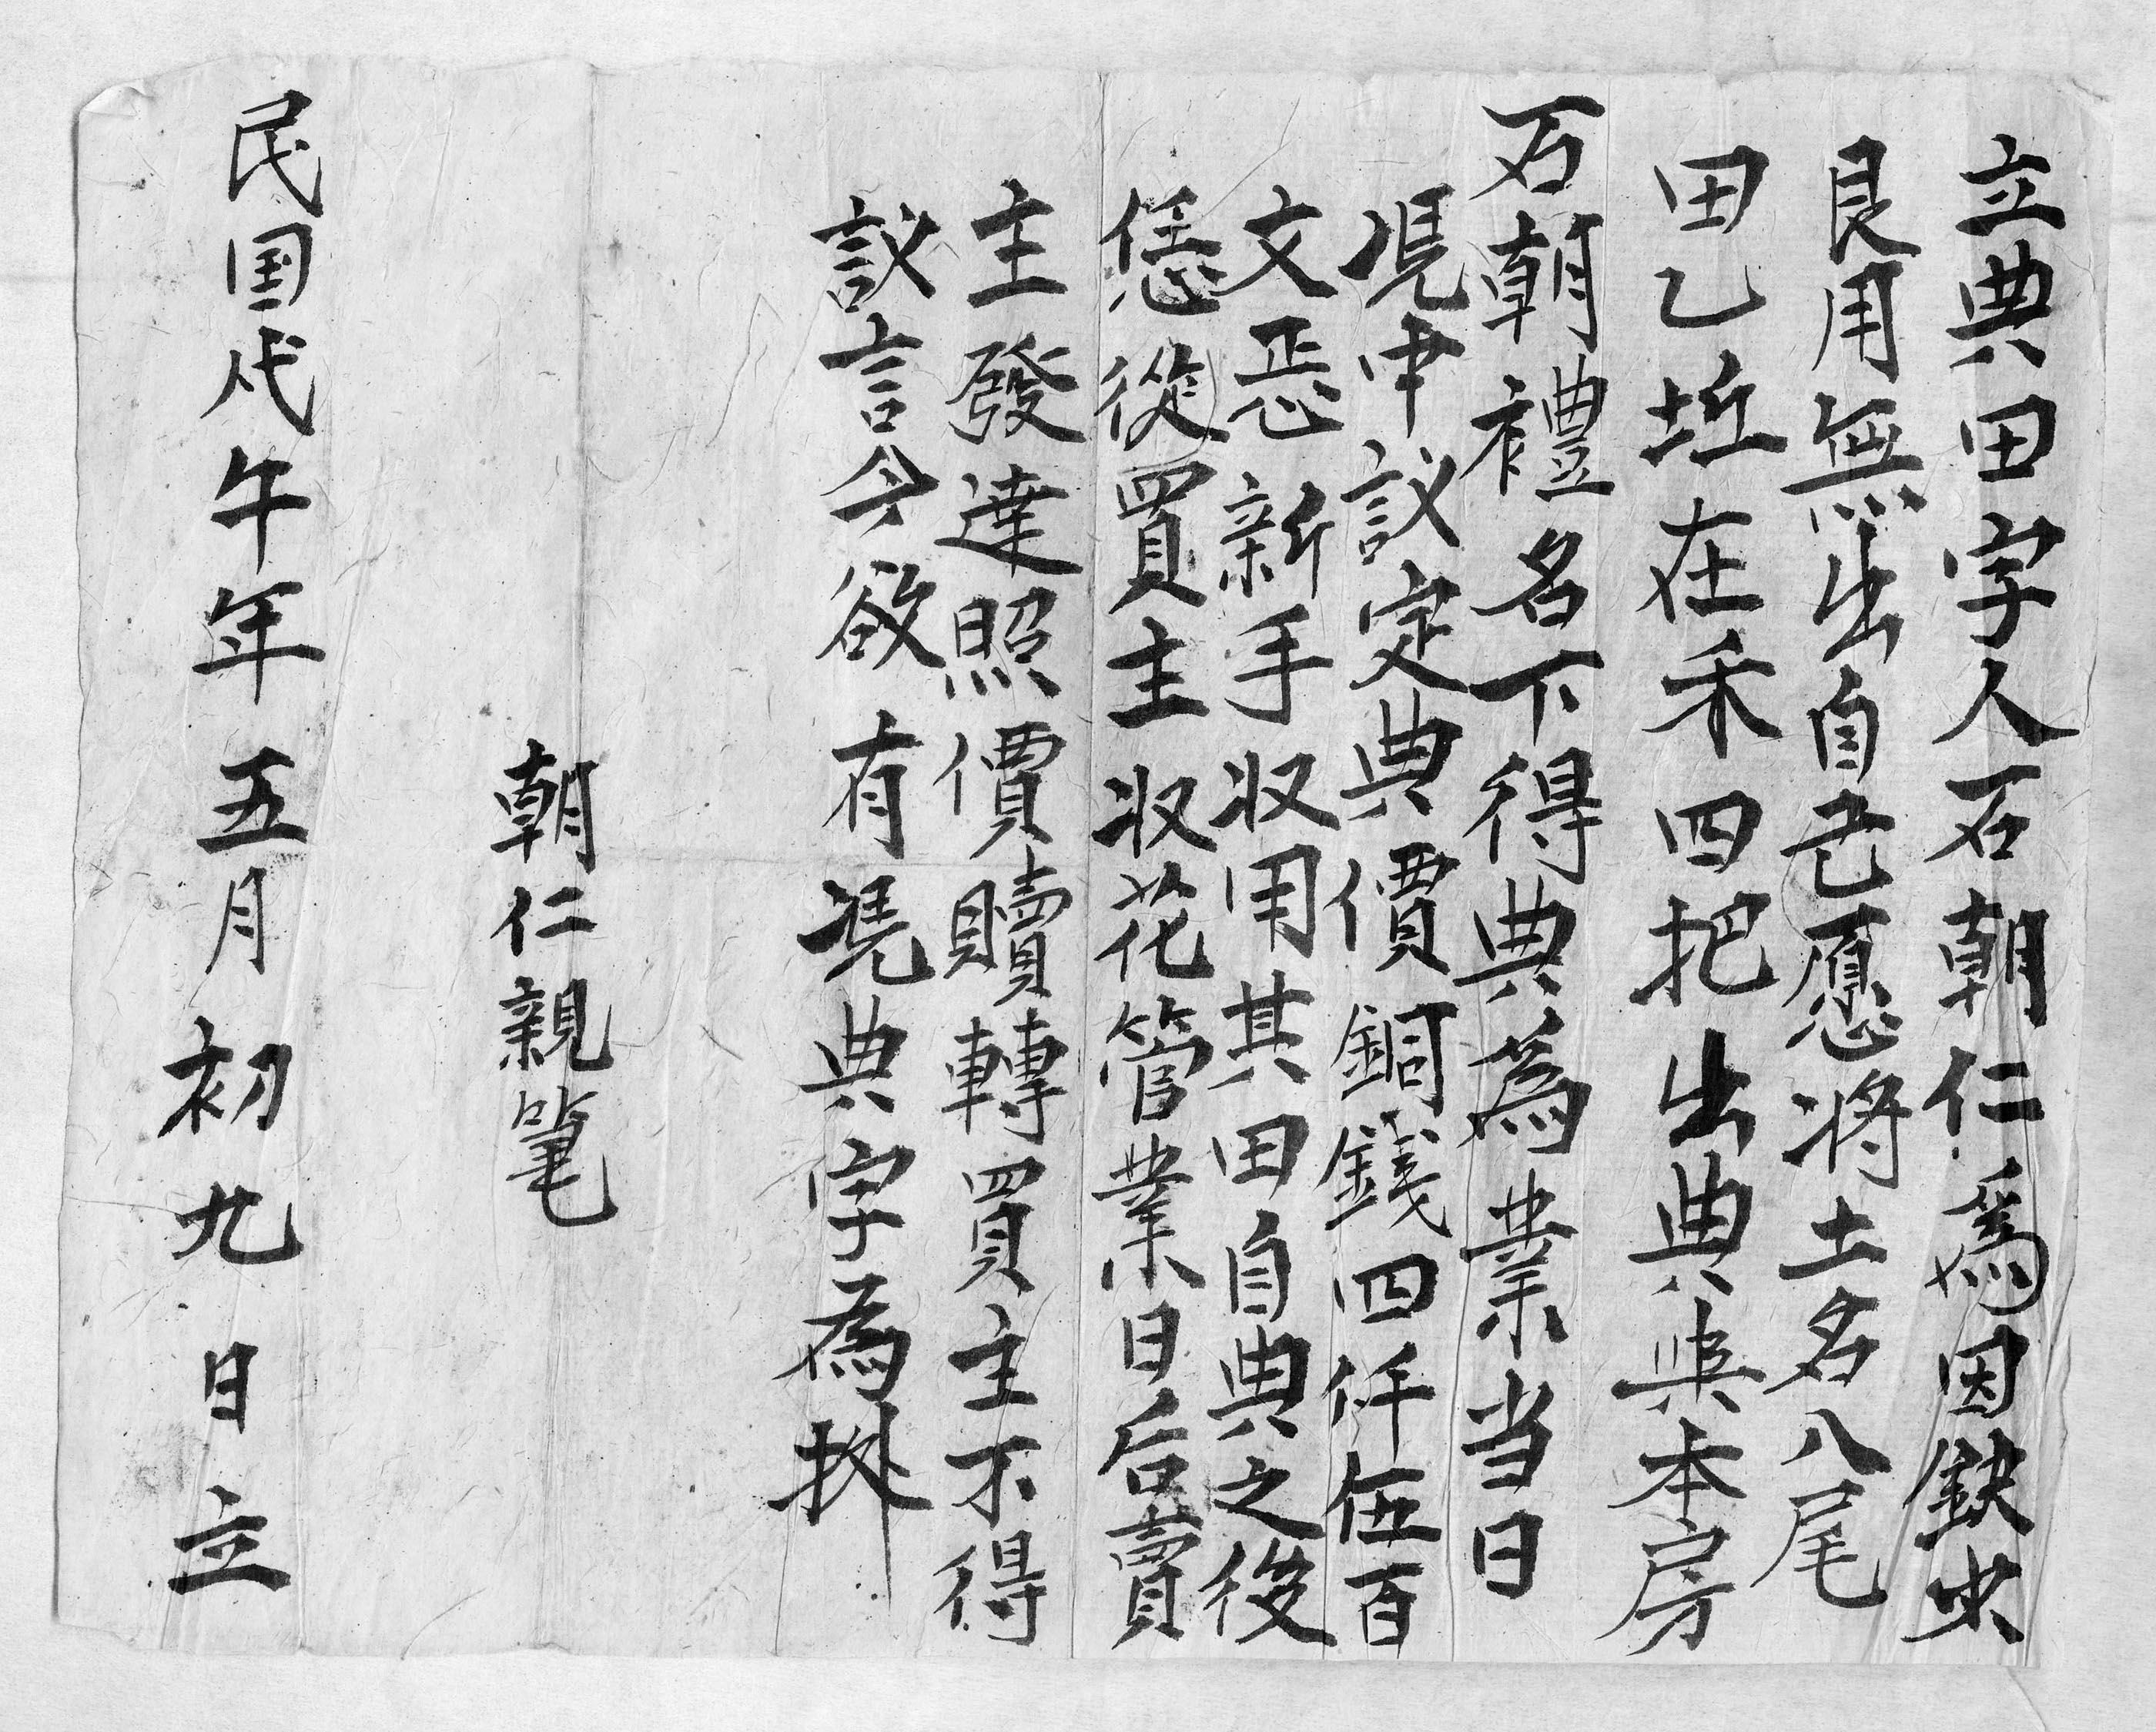 立典田字人石朝仁為因缺少
艮用無出自己愿將土名八尾
田乙坵在禾四把出典與本房
石朝禮名下得典為業当日
凴中議定典價銅錢四仟伍百
文恶新手収用其田自典之後
恁從買主収花管業日后賣
主發達照價贖轉買主不得
議言今欲有凴典字為拠
朝仁親笔
民国戊午年五月初九日立